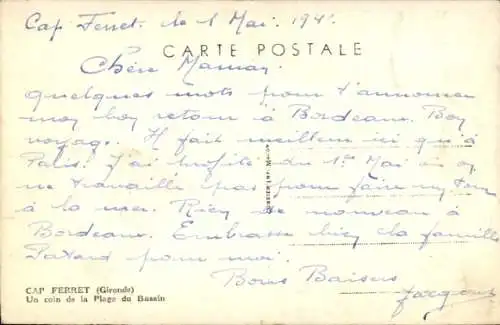 Cap Ferret. le 1 Mai. 194
CARTE POSTALE
Chère Maman.
Quelques mots pour t'annoncer
mon bon retour à Bordeaux. Bon
voyage. Il fait meilleur ici qu'à
Paris. J'ai profité du 1er Mai où on
ne travaille pas pour faire un tour
à la mer. Rien de nouveau à
Bordeaux. Embrasse bien la famille
Patard pour moi.
Bons Baisers
Jacques
CAP FERRET (Gironde)
Un coin de la Plage du Bassin